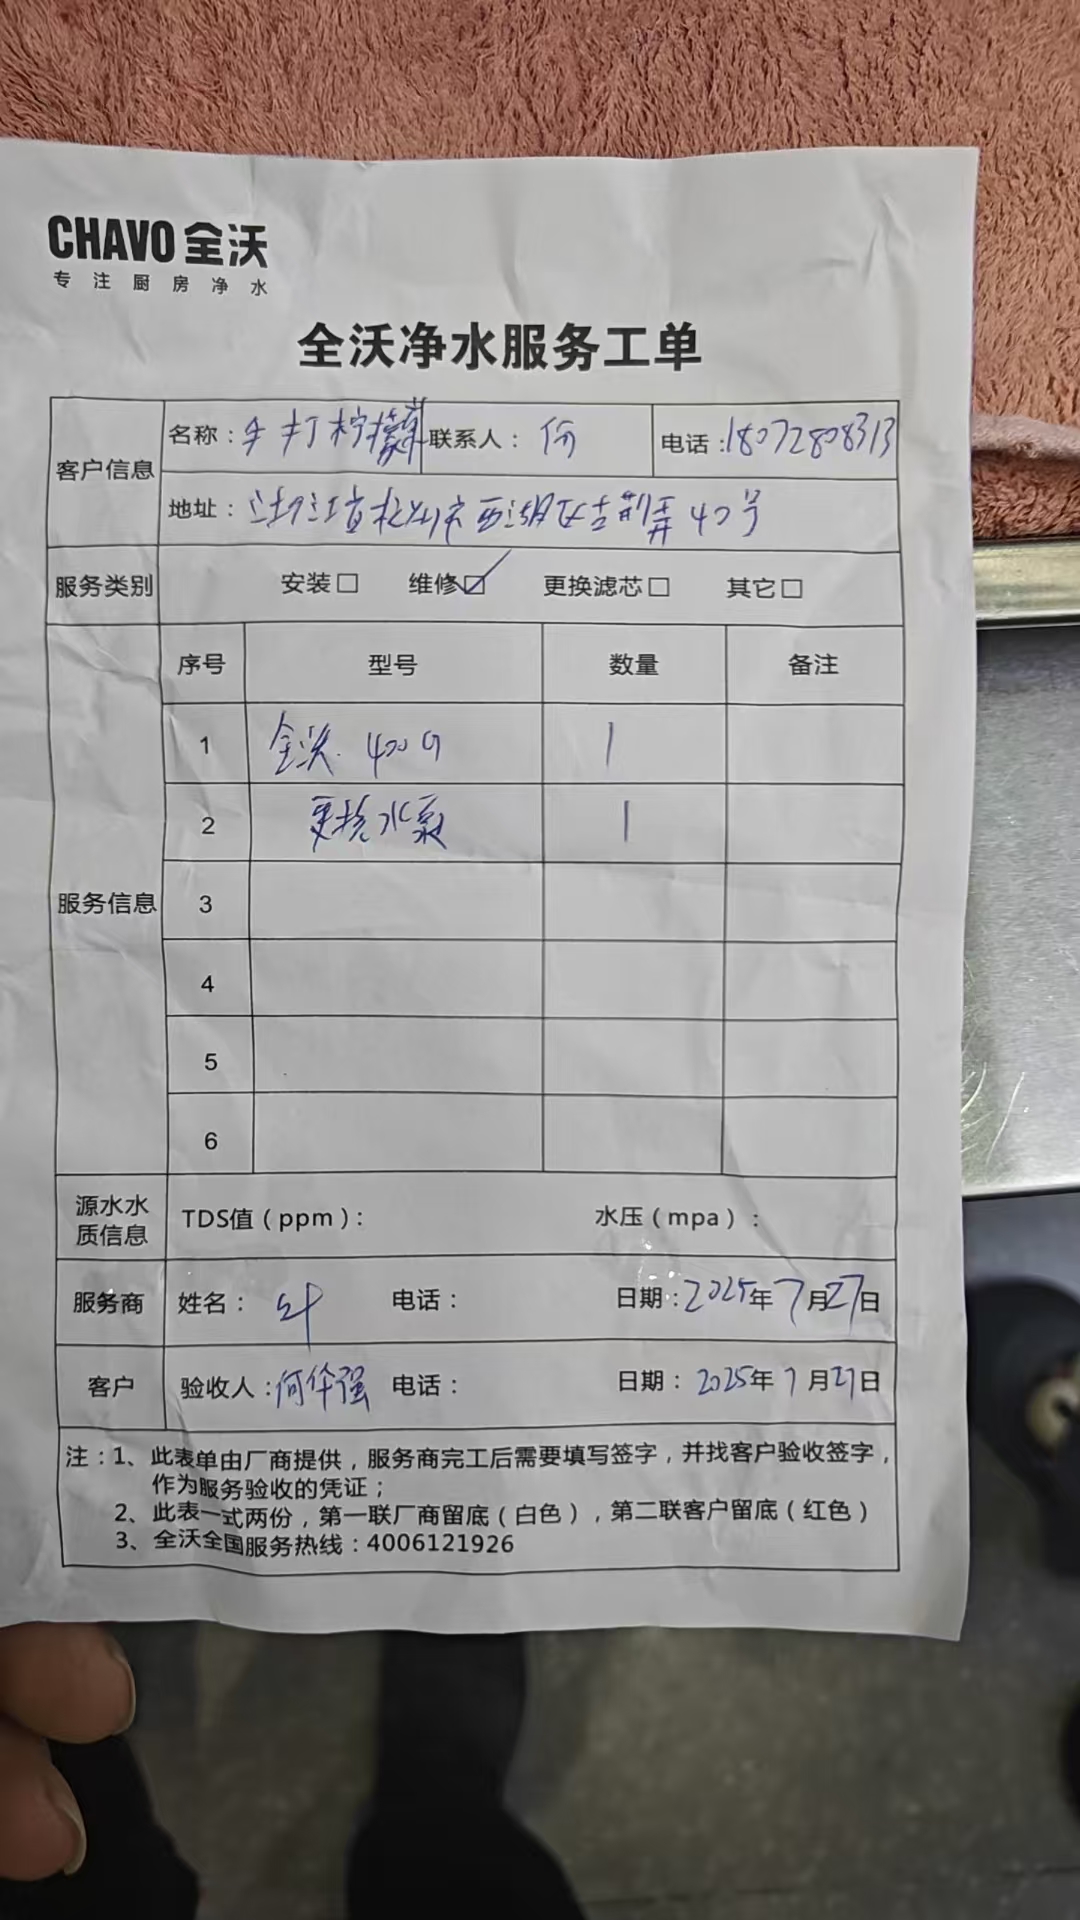 CHAVO 全沃
专注厨房净水
全沃净水服务工单
客户信息
名称：手打柠檬茶 联系人：何 电话：18072808313
地址：浙江省杭州市西湖区古荆弄40号
服务类别 安装□ 维修☑ 更换滤芯□ 其它□
服务信息
序号 型号 数量 备注
1 全沃 400G 1
2 更换水泵 1
3
4
5
6
源水水质信息 TDS值（ppm）： 水压（mpa）：
服务商 姓名： 电话： 日期：2025年7月27日
客户 验收人：何华强 电话： 日期：2025年7月27日
注：1、此表单由厂商提供，服务商完工后需要填写签字，并找客户验收签字，
作为服务验收的凭证；
2、此表一式两份，第一联厂商留底（白色），第二联客户留底（红色）
3、全沃全国服务热线：4006121926